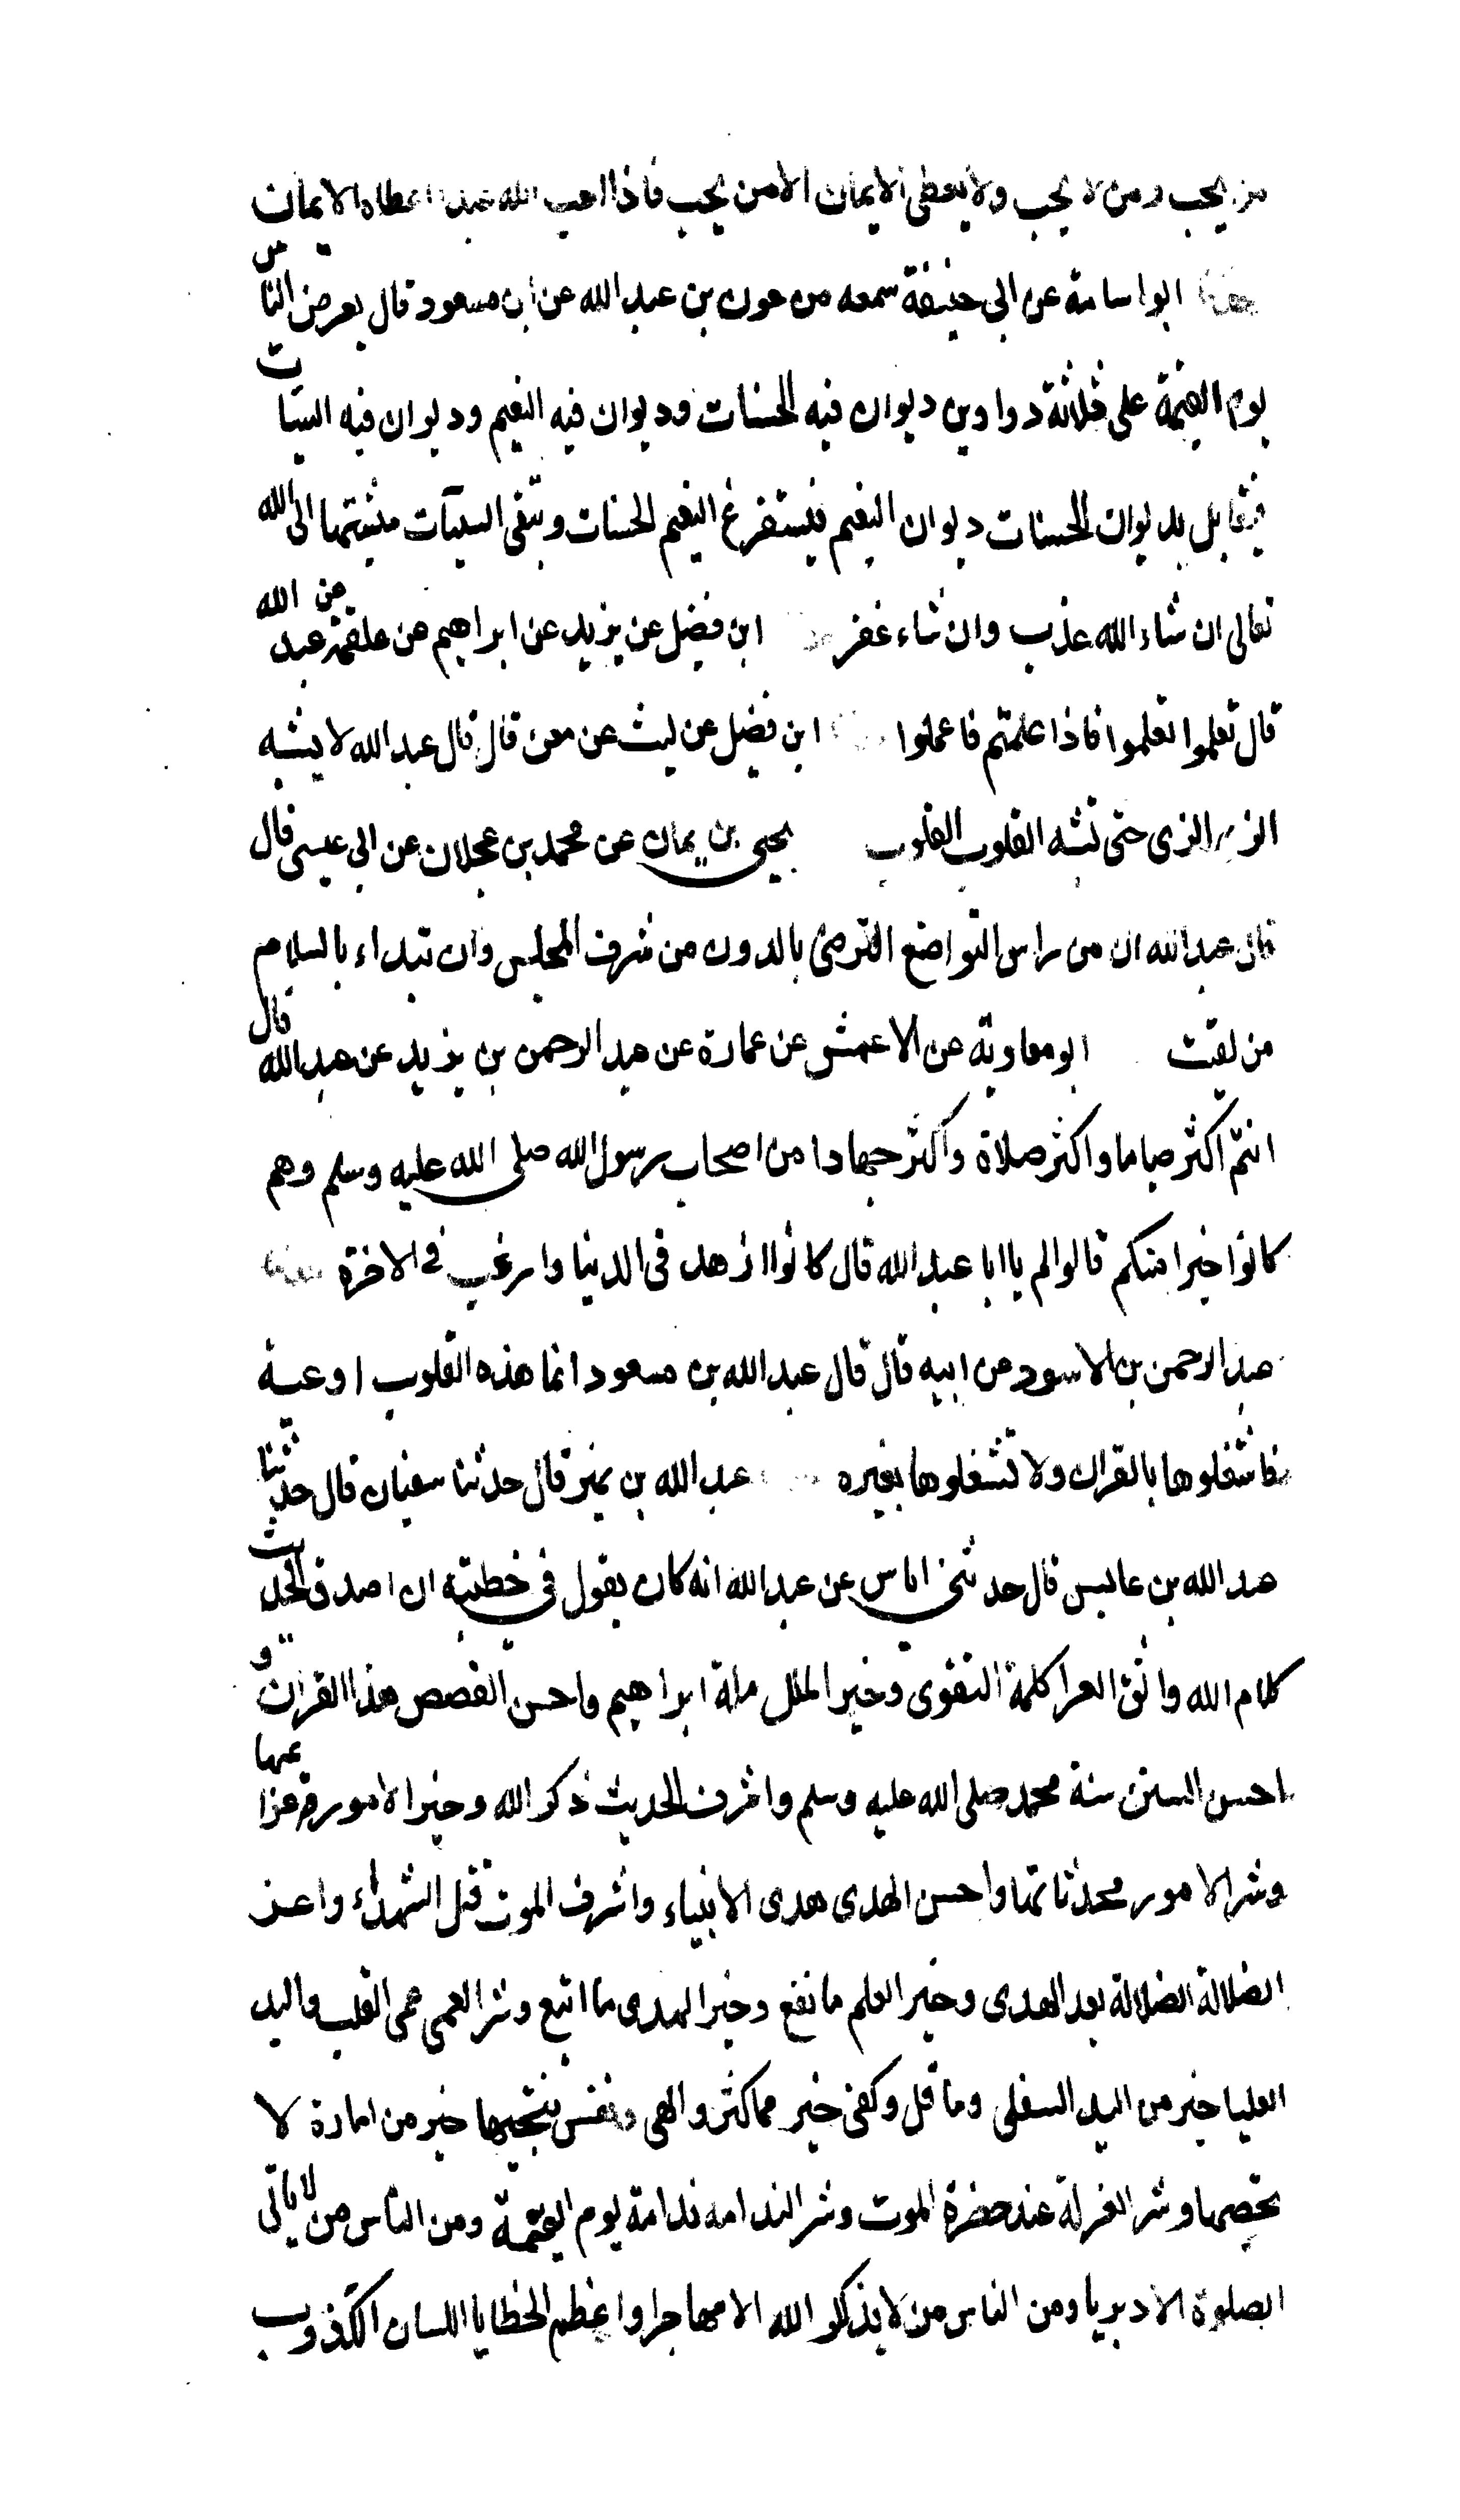 من يحب ومن لا يحب ولا يعطى الايمان الا من يحب فاذا احب الله عبدا اعطاه الايمان
حدثنا ابو اسامة عن ابى حنيفة سمعه من عون بن عبد الله عن ابن مسعود قال يعرض الناس
يوم القيمة على ثلاثة دواوين ديوان فيه الحسنات وديوان فيه النعيم وديوان فيه السيات
فيقابل بديوان الحسنات ديوان النعيم فيستفرغ النعيم الحسنات وتبقى السيآت مشيتها الى الله
تعالى ان شاء الله عذب وان شاء غفر ابن فضيل عن يزيد عن ابراهيم عن علقمة عن عبد الله
قال تعلموا تعلموا فاذا علمتم فاعملوا ابن فضيل عن ليث عن معن قال قال عبد الله لا يشبه
الزى الزى حتى تشبه القلوب القلوب يحيى بن يمان عن محمد بن عجلان عن ابى عيسى قال
قال عبد الله ان من راس التواضع الترضى بالدون من شرف المجلس وان تبداء بالسلام
من لقيت ابو معاوية عن الاعمش عن عمارة عن عبد الرحمن بن يزيد عن عبد الله قال
انتم اكثر صياما واكثر صلاة واكثر جهادا من اصحاب رسول الله صلى الله عليه وسلم وهم
كانوا خيرا منكم قالوا لم يا ابا عبد الله قال كانوا ازهد فى الدنيا وارغب فى الاخرة
عبد الرحمن بن الاسود عن ابيه قال قال عبد الله بن مسعود انما هذه القلوب اوعية
فاشغلوها بالقران ولا تشغلوها بغيره عبد الله بن نمير قال حدثنا سفيان قال حدثنا
عبد الله بن عابس قال حدثنى اناس عن عبد الله انه كان يقول فى خطبته ان اصدق الحديث
كلام الله واوثق العرا كلمة التقوى وخير الملل ملة ابراهيم واحسن القصص هذا القران و
احسن السنن سنة محمد صلى الله عليه وسلم واشرف الحديث ذكر الله وخير الامور عزائمها
وشر الامور محدثاتها واحسن الهدى هدى الانبياء واشرف الموت قتل الشهداء واعز
الضلالة الضلالة بعد الهدى وخير العلم ما نفع وخير الهدى ما اتبع وشر العمى عمى القلب واليد
العليا خير من اليد السفلى وما قل وكفى خير مما كثر والهى ونفس تنجيها خير من امارة لا
تحصيها وشر العزلة عند حضرة الموت وشر الندامه ندامة يوم القيمة ومن الناس من لا ياتى
الصلوة الا دبريا ومن الناس من لا يذكر الله الا مهاجرا واعظم الخطايا اللسان الكذوب